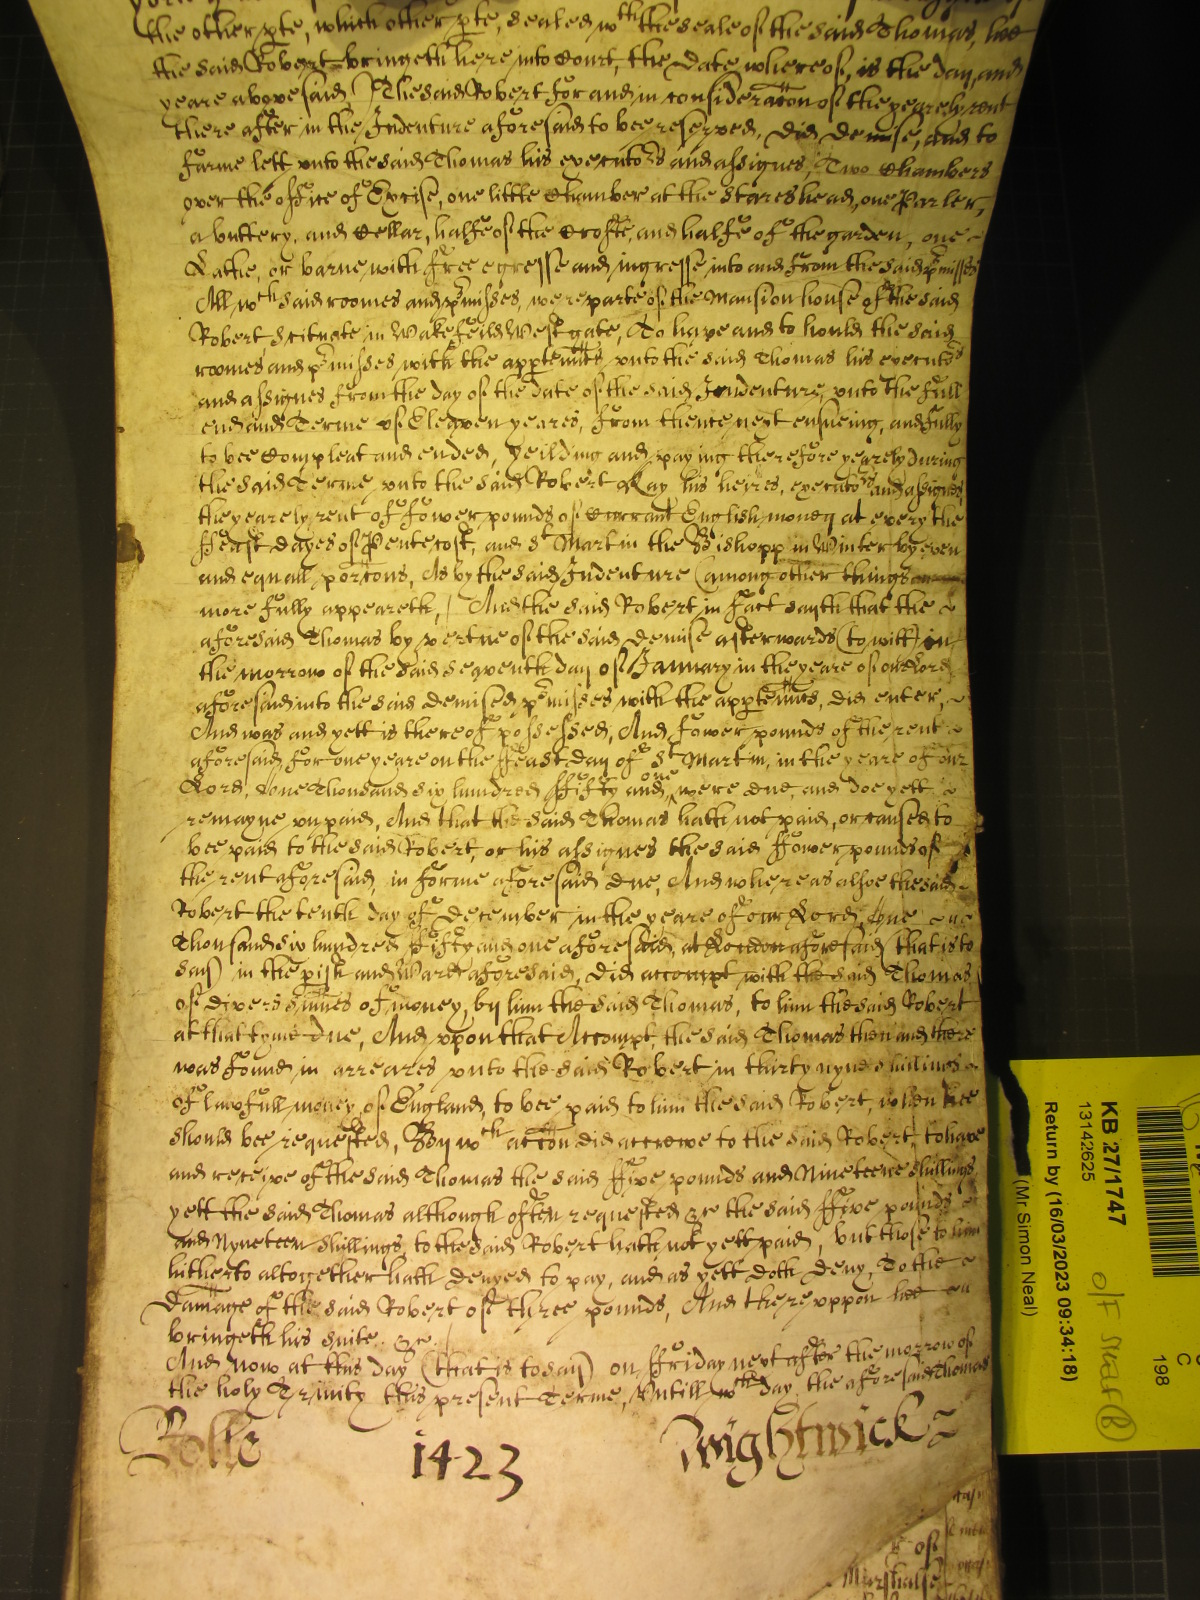 the other pte, which other pte, sealed wth the seale of the said Thomas, hee
the said Robert bringeth here into Court, the Date whereof, is the day, and
yeare abovesaid The said Robert for and in consideracon of the yearely rent
there after in the Indenture aforesaid to bee reserved, did demise, and to
farme lett unto the said Thomas his executors and assignes, Two Chambers
over the office of Excise, one little Chamber at the stares head, one Parler,
a buttery, and Cellar, halfe of the Crofte, and halfe of the garden, one
Lathe, or barne with free egresse and ingresse into and from the said pmisses
All wch said roomes and pmisses, were parte of the Mansion house of the said
Robert scituate in Wakefeild Westgate, To have and to hould the said
roomes and pmisses with the apptenncs unto the said Thomas his executors
and assignes from the day of the date of the said Indenture, unto the full
end and Terme of Eleaven yeares, from thence next ensueing, and fully
to bee Compleat and ended, yeilding and paying therefore yearely during
the said Terme unto the said Robert Kay his heires, executors and assignes
the yearely rent of fower pounds of Currant English money at every the
ffeast dayes of Pentecost, and St Martin the Bishopp in Winter by even
and equall porcons, As by the said Indenture (among other things
more fully appeareth, And the said Robert in fact saith that the
aforesaid Thomas by vertue of the said demise afterwards (to witt) on
the morrow of the said seaventh day of January in the yeare of our Lord
aforesaid into the said demised pmisses with the apptenncs, did enter,
And was and yett is thereof possessed, And fower pounds of the rent
aforesaid for one yeare on the ffeast day of St Martin, in the yeare of our
Lord, One Thousand six hundred ffifty and one were due, and doe yett
remayne unpaid, And that the said Thomas hath not paid, or caused to
bee paid to the said Robert, or his assignes the said ffower pounds of
the rent aforesaid, in forme aforesaid due, And whereas alsoe the said
Robert the tenth day of December in the yeare of our Lord, One
Thousand six hundred ffifty and one aforesaid, at London aforesaid (that is to
say) in the pish and Ward aforesaid, did accompt with the said Thomas
of divers summes of money, by him the said Thomas, to him the said Robert
at that tyme due, And upon that Accompt, the said Thomas then and there
was found in arreares unto the said Robert in thirty nyne shillings
of lawfull money of England, to bee paid to him the said Robert, when hee
should bee requested, By wch accon did accrewe to the said Robert, to have
and receive of the said Thomas the said ffive pounds and Nineteene shillings
yett the said Thomas although often requested &c the said ffive pounds
and Nyneteen shillings, to the said Robert hath not yett paid, but those to him
hitherto altogether hath denyed to pay, and as yett doth deny, To the
damage of the said Robert of three pounds, And thereuppon hee
bringeth his suite &c
And now at this day (that is to say) on ffriday next after the morrow of
the holy Trinity this present Terme, Untill wch day, the aforesaid Thomas
Rolle 1423 Wightwick
of
Marshalse
KB 27/1747
13142625
Return by (16/03/2023 09:34:18)
(Mr Simon Neal)
C
198